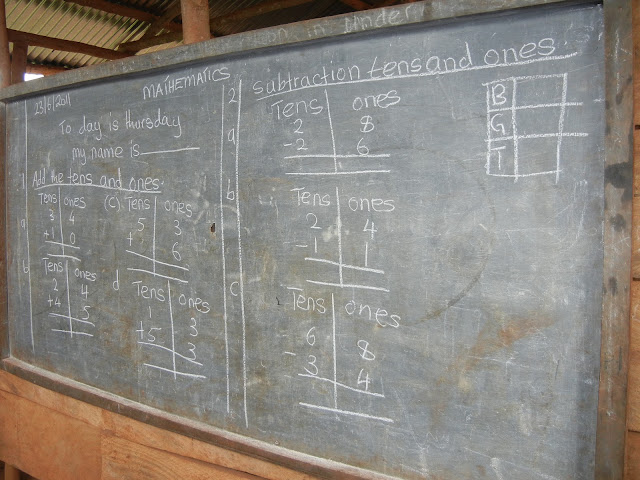 in Under
MATHEMATICS
23/6/2011
To day is thursday
my name is
1 Add the tens and ones.
a
Tens ones
3 4
+1 0
b
Tens ones
2 4
+4 5
(c) Tens ones
5 3
+1 6
d
Tens ones
1 3
+5 3
2 Subtraction tens and ones.
a
Tens ones
2 8
-2 6
b
Tens ones
2 4
-1 1
c
Tens ones
6 8
- 3 4
B
G
T